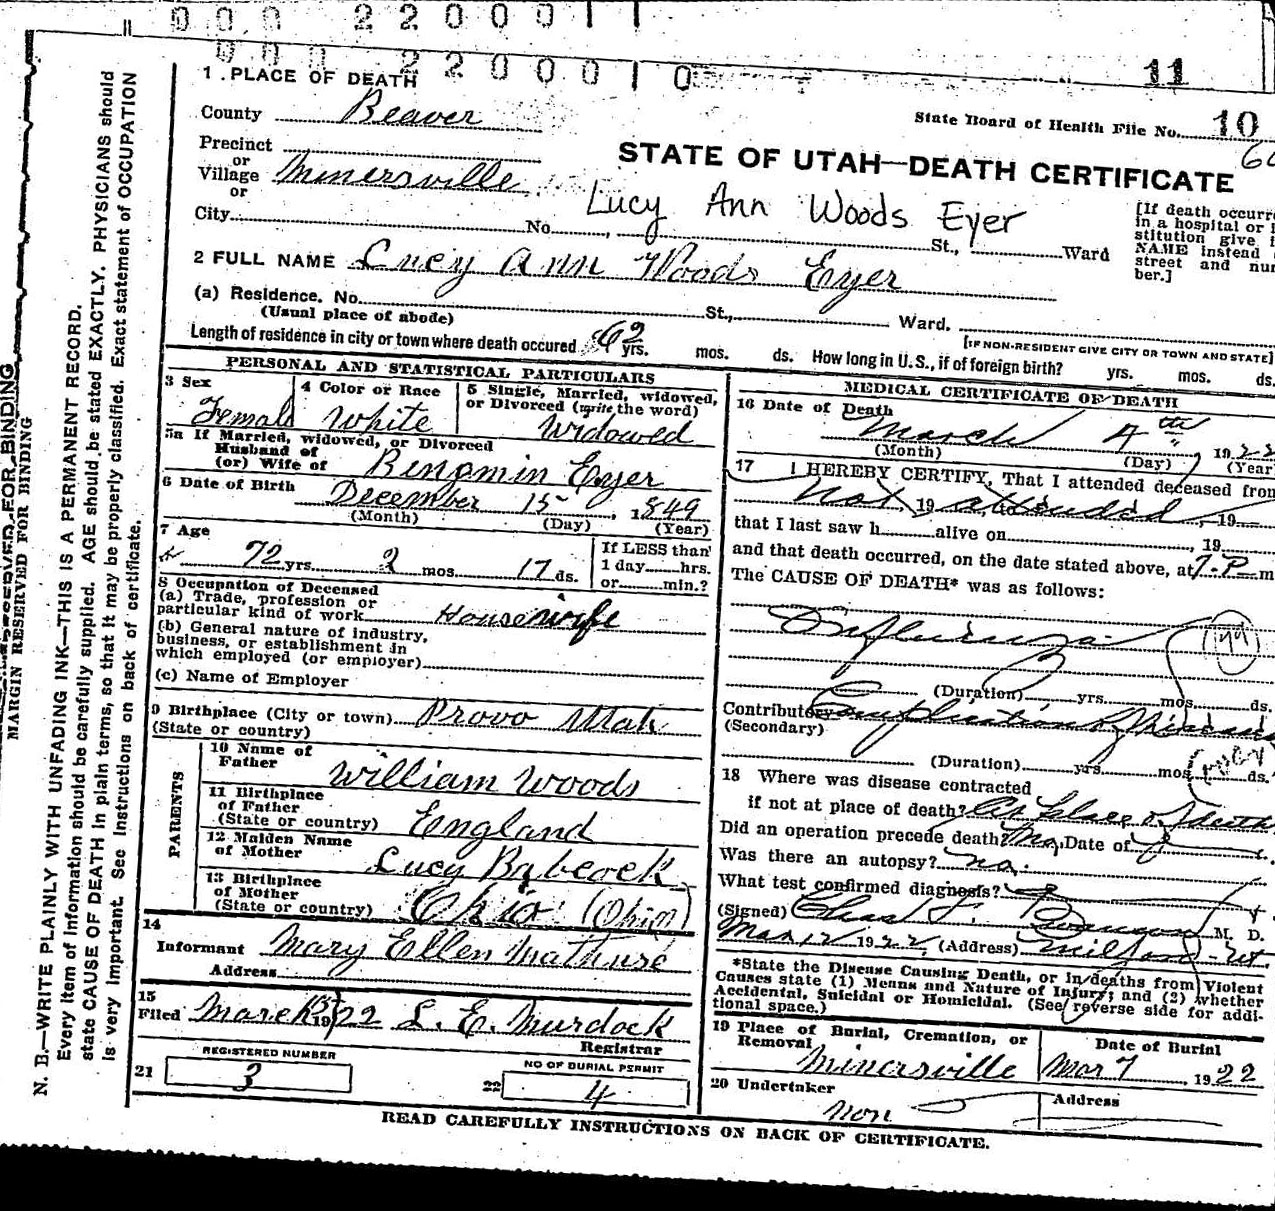 0 0 0 2 2 0 0 0 1 1
0 0 0 2 2 0 0 0 1 0
11
1. PLACE OF DEATH
County Beaver
State Board of Health File No. 10
Precinct
or
Village Minersville
or
STATE OF UTAH—DEATH CERTIFICATE
Lucy Ann Woods Eyer
City No. St., Ward
[If death occurr
in a hospital or i
stitution give i
NAME instead
street and nu
ber.]
2 FULL NAME Lucy Ann Woods Eyer
(a) Residence. No. St., Ward.
(Usual place of abode)
[IF NON-RESIDENT GIVE CITY OR TOWN AND STATE]
Length of residence in city or town where death occured 62 yrs. mos. ds. How long in U.S., if of foreign birth? yrs. mos. ds.
PERSONAL AND STATISTICAL PARTICULARS
3 Sex Female
4 Color or Race White
5 Single, Married, widowed,
or Divorced (write the word)
Widowed
5a If Married, widowed, or Divorced
Husband of
(or) Wife of Benjmin Eyer
6 Date of Birth December 15, 1849
(Month) (Day) (Year)
7 Age
72 yrs. 2 mos. 17 ds.
If LESS than
1 day hrs.
or min.?
8 Occupation of Deceased
(a) Trade, profession or
particular kind of work Housewife
(b) General nature of industry,
business, or establishment in
which employed (or employer)
(c) Name of Employer
9 Birthplace (City or town) Provo Utah
(State or country)
PARENTS
10 Name of
Father William Woods
11 Birthplace
of Father
(State or country) England
12 Maiden Name
of Mother Lucy Babcock
13 Birthplace
of Mother
(State or country) Ohio (Ohio)
14
Informant Mary Ellen
Address
15
Filed March 1922 L. E. Murdock
Registrar
21 REGISTERED NUMBER
3
22 NO OF BURIAL PERMIT
4
MEDICAL CERTIFICATE OF DEATH
16 Date of Death
March 4th 1922
(Month) (Day) (Year
17 I HEREBY CERTIFY, That I attended deceased from
Not 19 attended, 19
that I last saw h alive on , 19
and that death occurred, on the date stated above, at 7.P m
The CAUSE OF DEATH* was as follows:
Influenza
(Duration) yrs. mos. ds.
Contributory Complication of
(Secondary)
(Duration) yrs. mos. ds.
18 Where was disease contracted
if not at place of death? At place of death
Did an operation precede death? No. Date of
Was there an autopsy? no.
What test confirmed diagnosis?
(Signed) M. D.
Mar 12 1922 (Address) Milford - Ut.
*State the Disease Causing Death, or in deaths from Violent
Causes state (1) Means and Nature of Injury; and (2) whether
Accidental, Suicidal or Homicidal. (See reverse side for addi-
tional space.)
19 Place of Burial, Cremation, or
Removal Minersville
Date of Burial
Mar 7 1922
20 Undertaker
Non
Address
READ CAREFULLY INSTRUCTIONS ON BACK OF CERTIFICATE.
MARGIN RESERVED FOR BINDING
N. B.—WRITE PLAINLY WITH UNFADING INK—THIS IS A PERMANENT RECORD.
Every item of information should be carefully supplied. AGE should be stated EXACTLY. PHYSICIANS should
state CAUSE OF DEATH in plain terms, so that it may be properly classified. Exact statement of OCCUPATION
is very important. See Instructions on back of certificate.